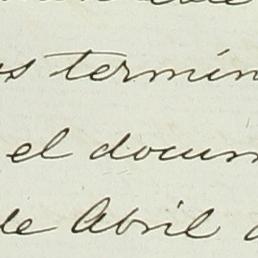 os términ
el docum
de Abril d